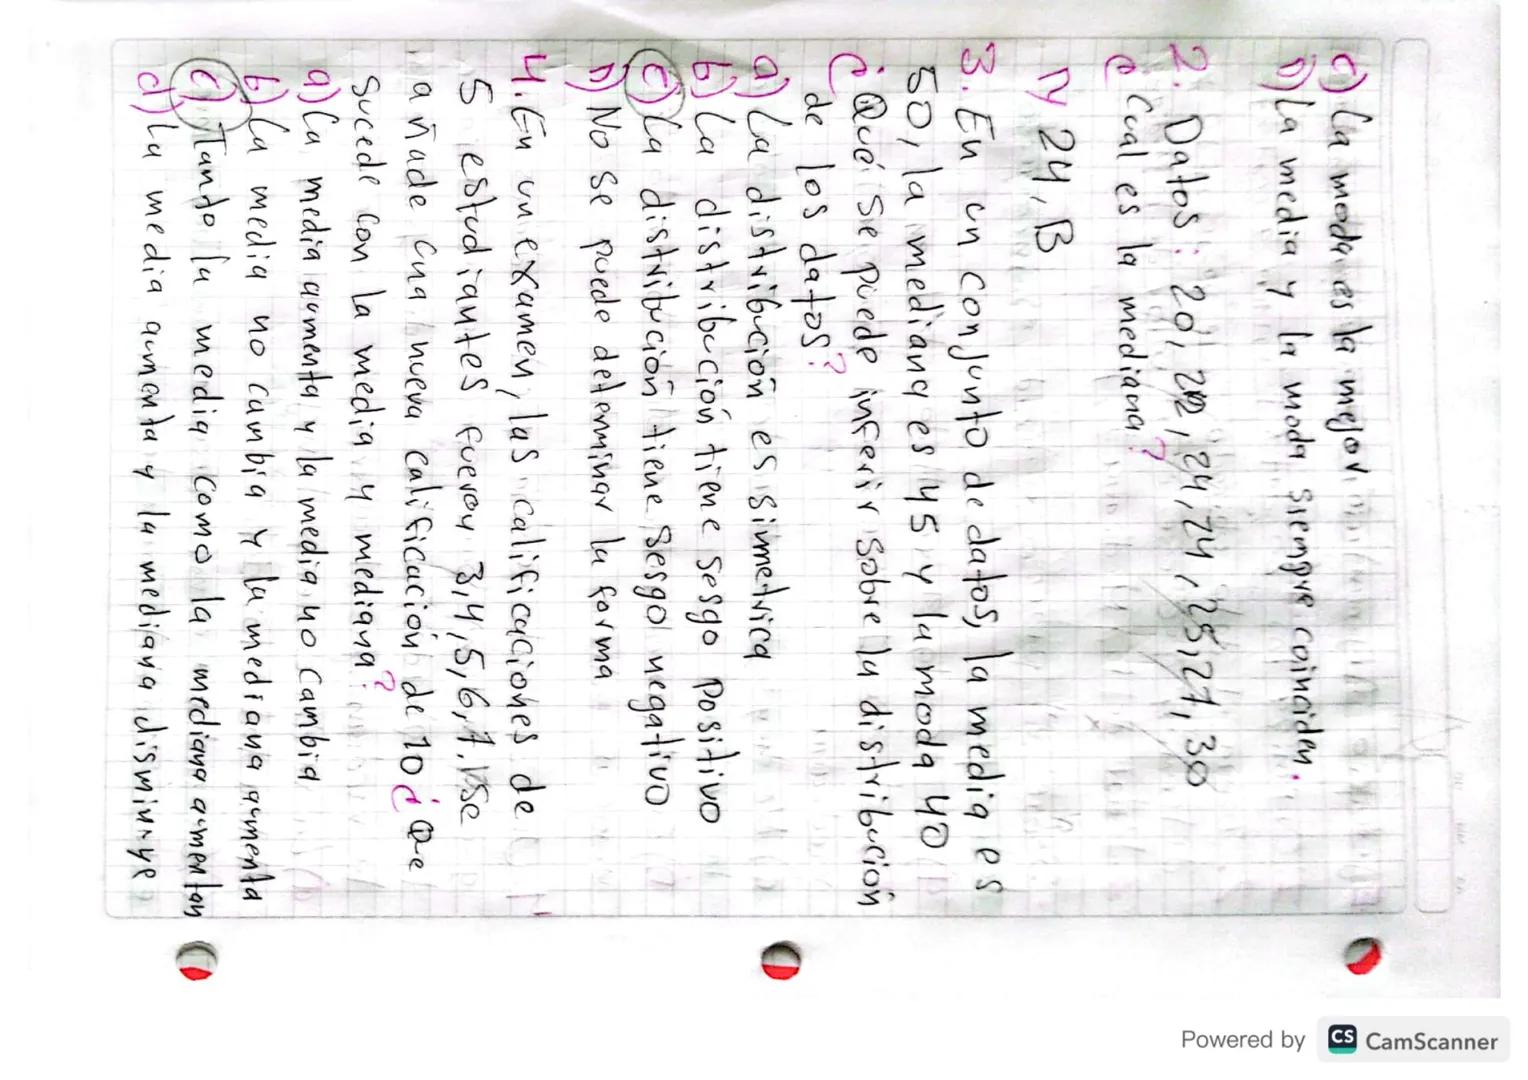 c) La moda es la mejor
D) La media y la moda siempre coinciden.
2. Datos: 20, 22, 24, 24, 25, 27, 30
¿ Cual es la mediana?
24, B
3. En un conjunto de datos, la media es
50, la mediana es 45 y la moda 40
¿Qué se puede inferir sobre la distribución
de los datos?
a) La distribución es simetrica
b) La distribución tiene sesgo positivo
c) La distribución tiene sesgo negativo
D) No se puede determinar la forma
4. En un examen, las calificaciones de
5 estudiantes fueron 3,4,5,6,7. se
añade una nueva calificación de 10 ¿ Que
sucede con la media y mediana?
a) La media aumenta y la media no cambia
b) La media no cambia y la mediana aumenta
c) Tando la media como la mediana aumentan
d) La media aumenta y la mediana disminuye
Powered by CS CamScanner